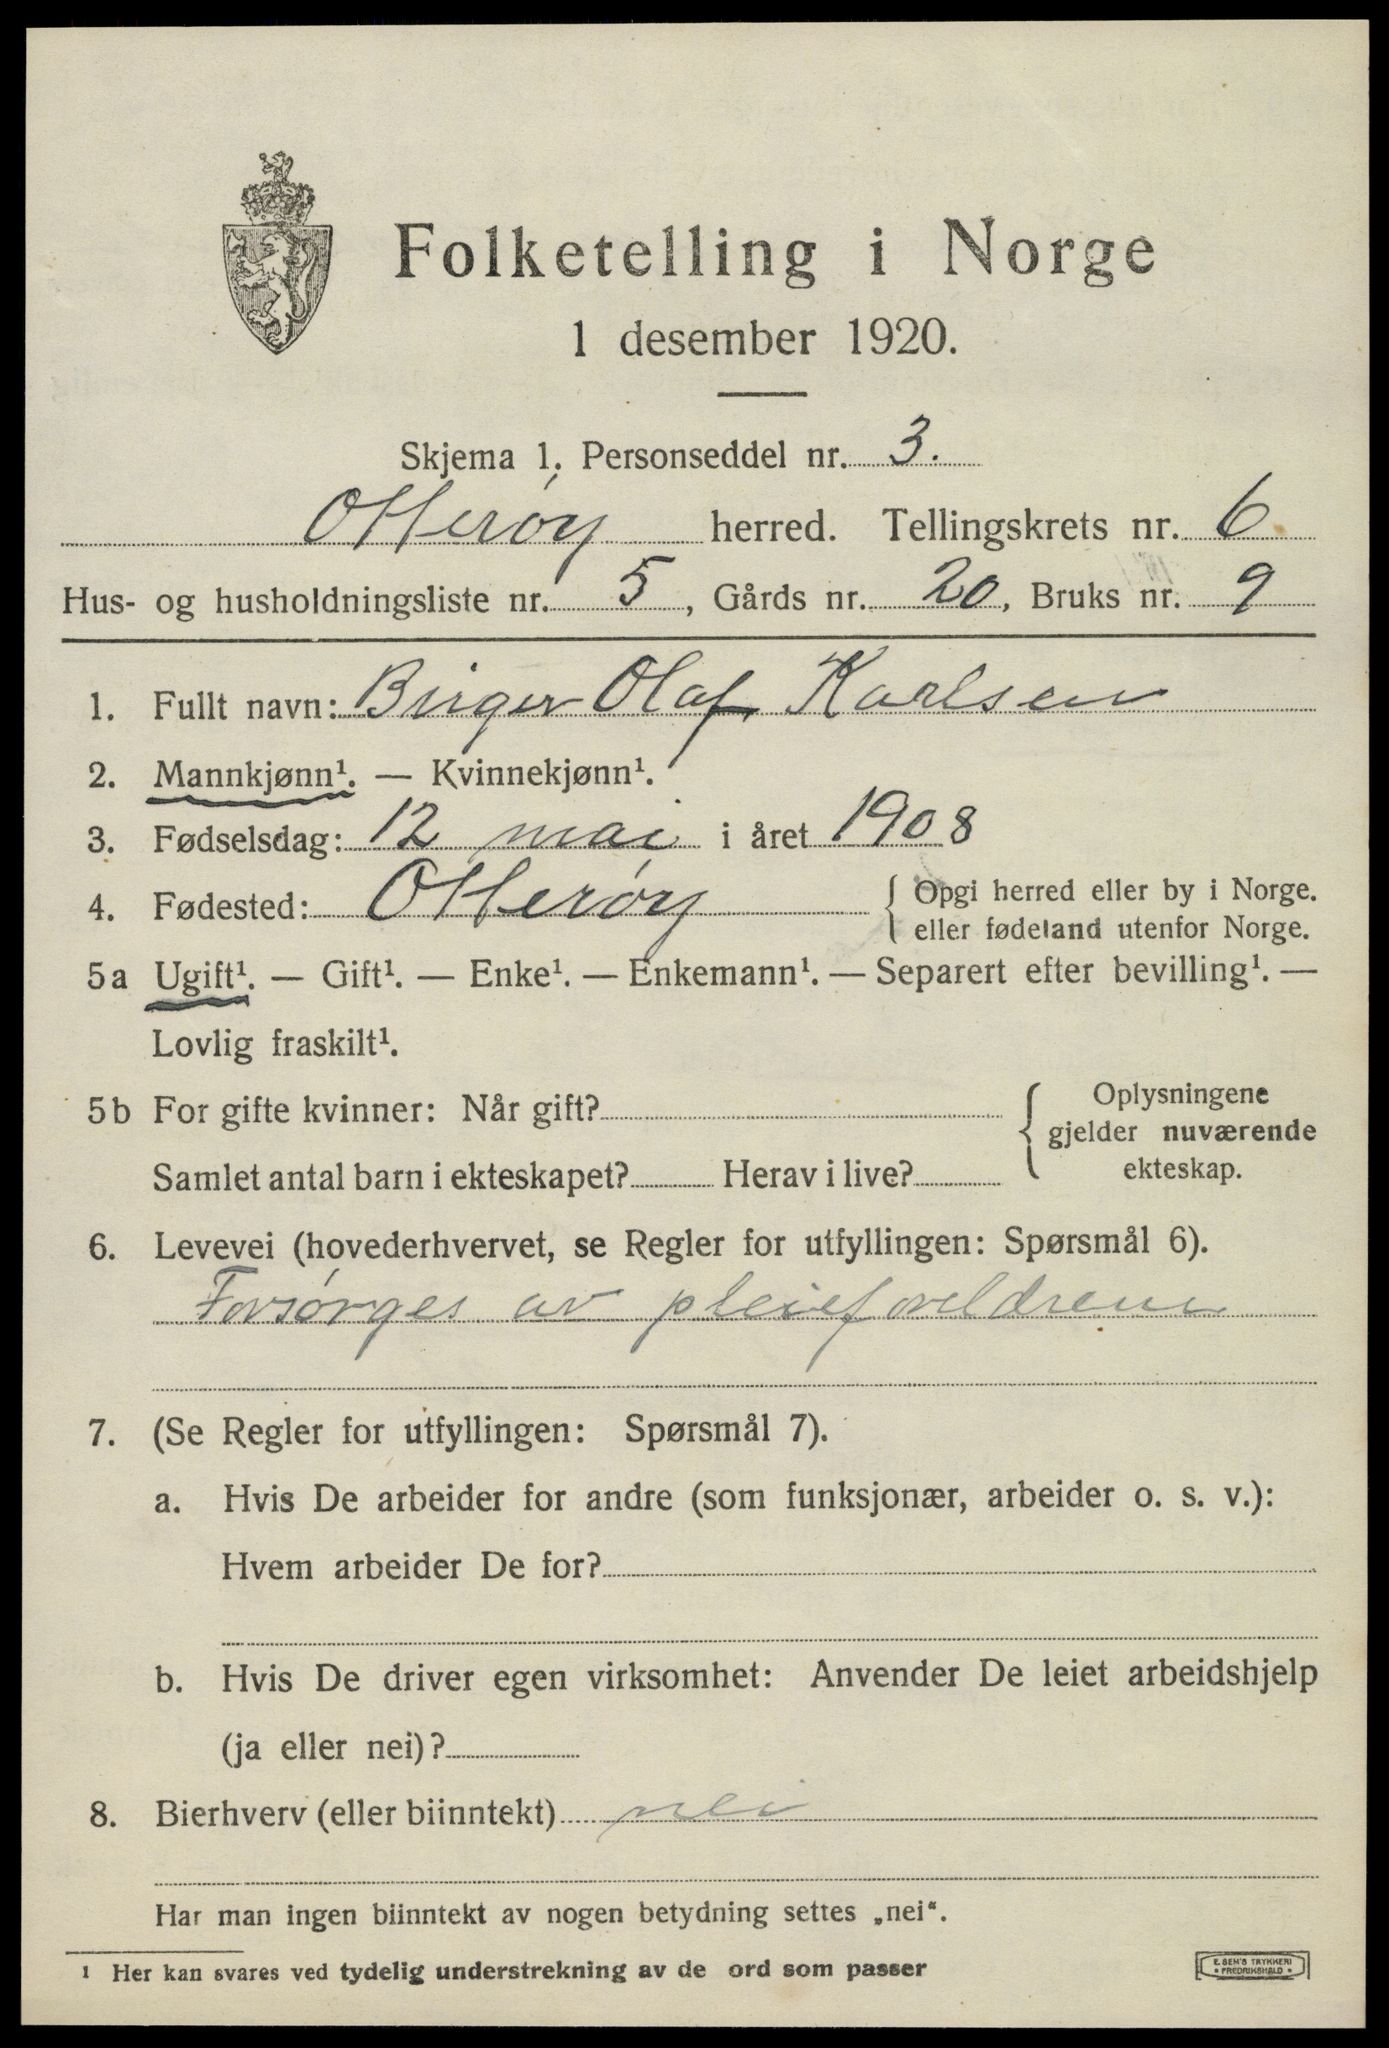 Folketelling i Norge
1 desember 1920.
Skjema 1. Personseddel nr. 3.
Otterøy herred. Tellingskrets nr. 6
Hus- og husholdningsliste nr. 5, Gårds nr. 20, Bruks nr. 9
1. Fullt navn: Birger Olaf Karlsen
2. Mannkjønn¹. — Kvinnekjønn¹.
3. Fødselsdag: 12 mai i året 1908
4. Fødested: Otterøy { Opgi herred eller by i Norge.
eller fødeland utenfor Norge.
5a Ugift¹. — Gift¹. — Enke¹. — Enkemann¹. — Separert efter bevilling¹. —
Lovlig fraskilt¹.
5b For gifte kvinner: Når gift? { Oplysningene
gjelder nuværende
Samlet antal barn i ekteskapet? Herav i live? ekteskap.
6. Levevei (hovederhvervet, se Regler for utfyllingen: Spørsmål 6).
Forsørges av pleieforeldrene
7. (Se Regler for utfyllingen: Spørsmål 7).
a. Hvis De arbeider for andre (som funksjonær, arbeider o. s. v.):
Hvem arbeider De for?
b. Hvis De driver egen virksomhet: Anvender De leiet arbeidshjelp
(ja eller nei)?
8. Bierhverv (eller biinntekt) nei
Har man ingen biinntekt av nogen betydning settes „nei“.
¹ Her kan svares ved tydelig understrekning av de ord som passer
E. SEM'S TRYKKERI
• FREDRIKSHALD •